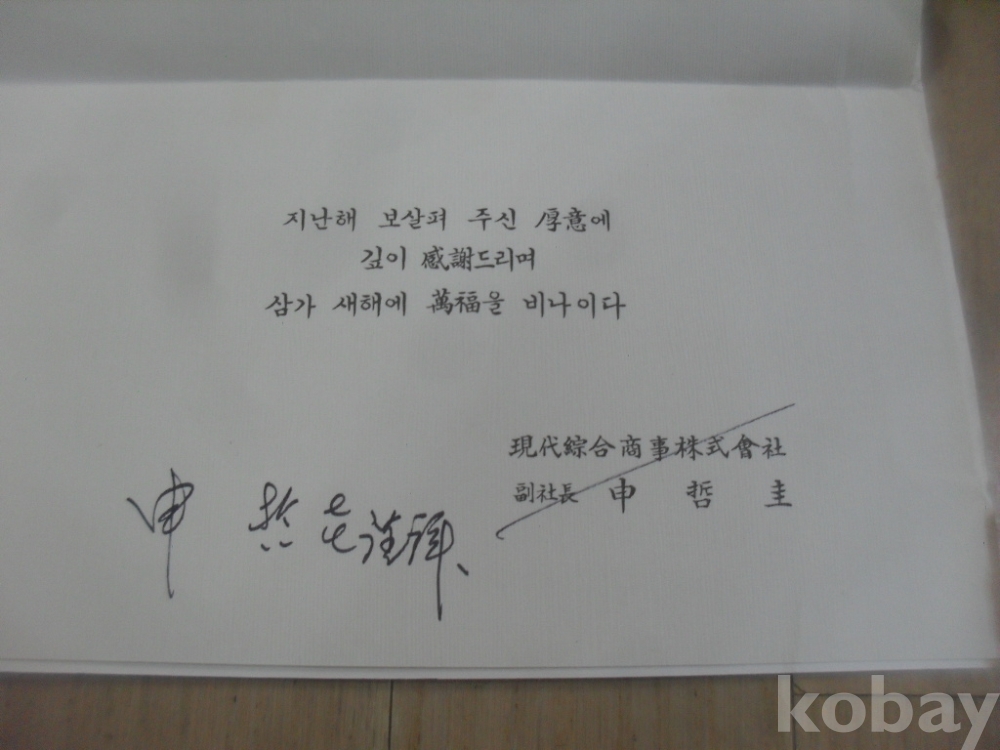 지난해 보살펴 주신 厚意에
깊이 感謝드리며
삼가 새해에 萬福을 비나이다
現代綜合商事株式會社
副社長 申 哲 圭
申 哲圭 謹拜
kobay